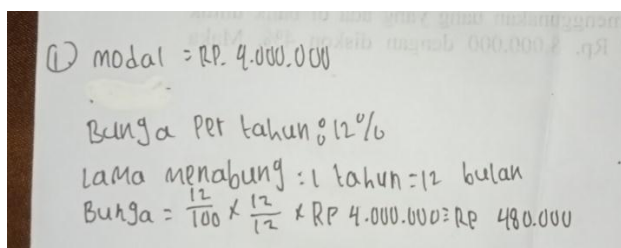 ① modal = RP. 4.000.000
Bunga per tahun : 12%
Lama menabung : 1 tahun = 12 bulan
Bunga = 12/100 x 12/12 x RP 4.000.000 = Rp 480.000